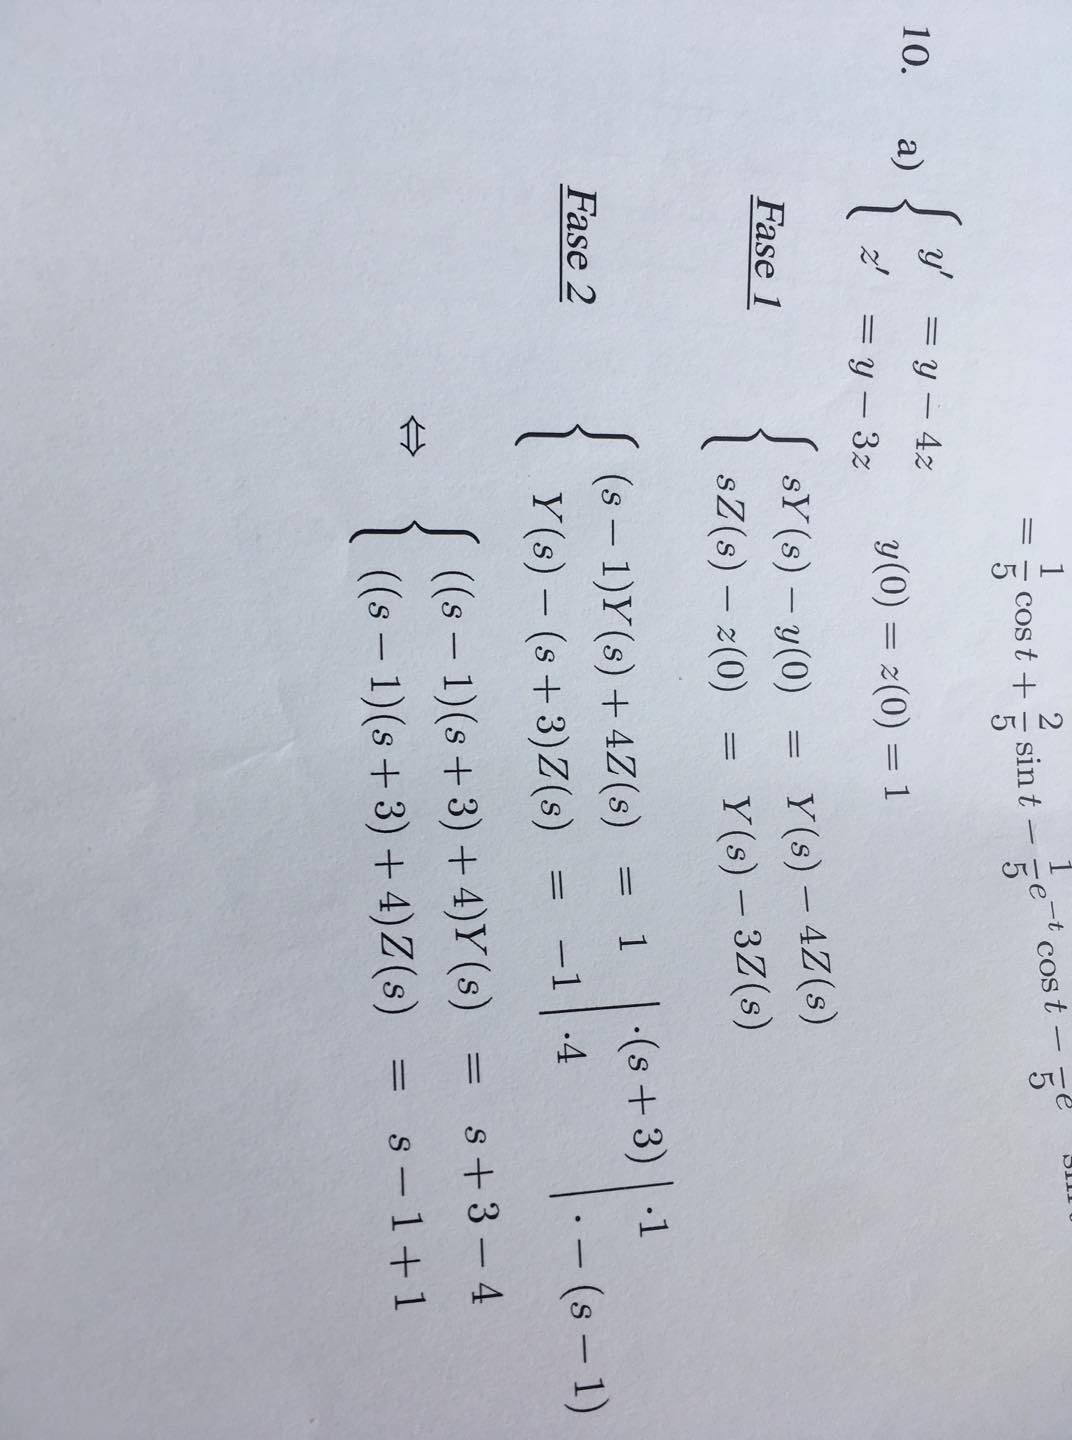 = 1/5 cos t + 2/5 sin t − 1/5 e^{−t} cos t − /5 e
10. a) { y′ = y − 4z
z′ = y − 3z y(0) = z(0) = 1
Fase 1 { sY(s) − y(0) = Y(s) − 4Z(s)
sZ(s) − z(0) = Y(s) − 3Z(s)
Fase 2 { (s − 1)Y(s) + 4Z(s) = 1 | ·(s + 3) | ·1
Y(s) − (s + 3)Z(s) = −1 | ·4 | · − (s − 1)
⇔ { ((s − 1)(s + 3) + 4)Y(s) = s + 3 − 4
((s − 1)(s + 3) + 4)Z(s) = s − 1 + 1